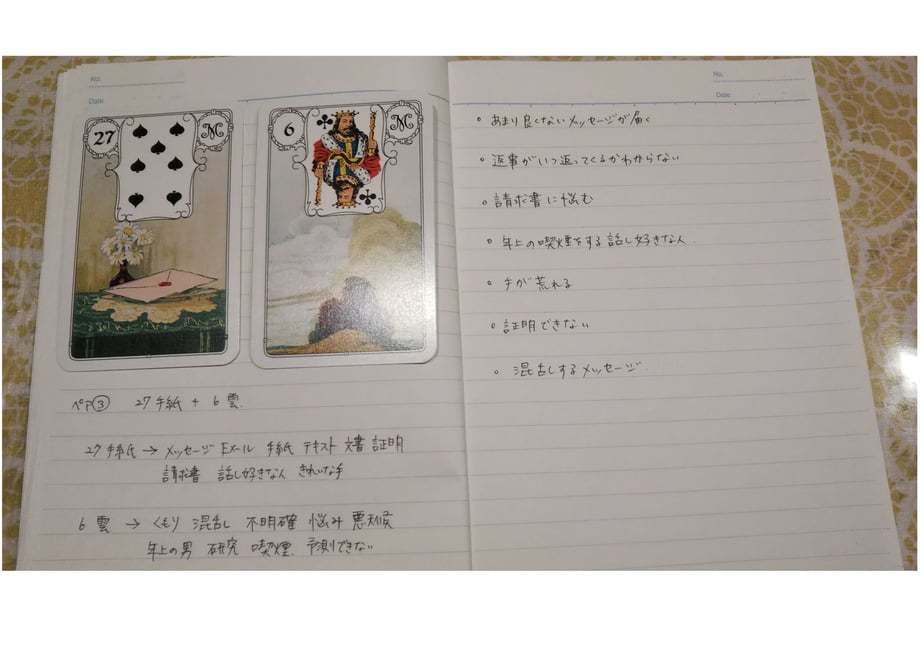 No.
Date
27
M
6
M
ペア③ 27手紙 + 6雲
27手紙 → メッセージ Eメール 手紙 テキスト 文書 証明
請求書 話し好きな人 きれいな手
6雲 → くもり 混乱 不明確 悩み 悪天候
年上の男 研究 喫煙 予測できない
No.
Date
。あまり良くないメッセージが届く
。返事がいつ返ってくるかわからない
。請求書に悩む
。年上の喫煙をする話し好きな人
。手が荒れる
。証明できない
。混乱するメッセージ